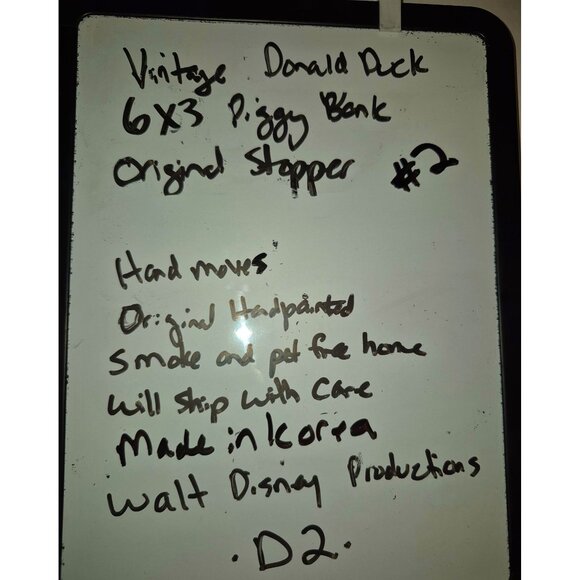 Vintage Donald Duck
6x3 Piggy Bank
Original Stopper #2
Hand moves
Original Handpainted
Smoke and pet free home
will ship with Care
Made in Korea
Walt Disney Productions
. D2 .